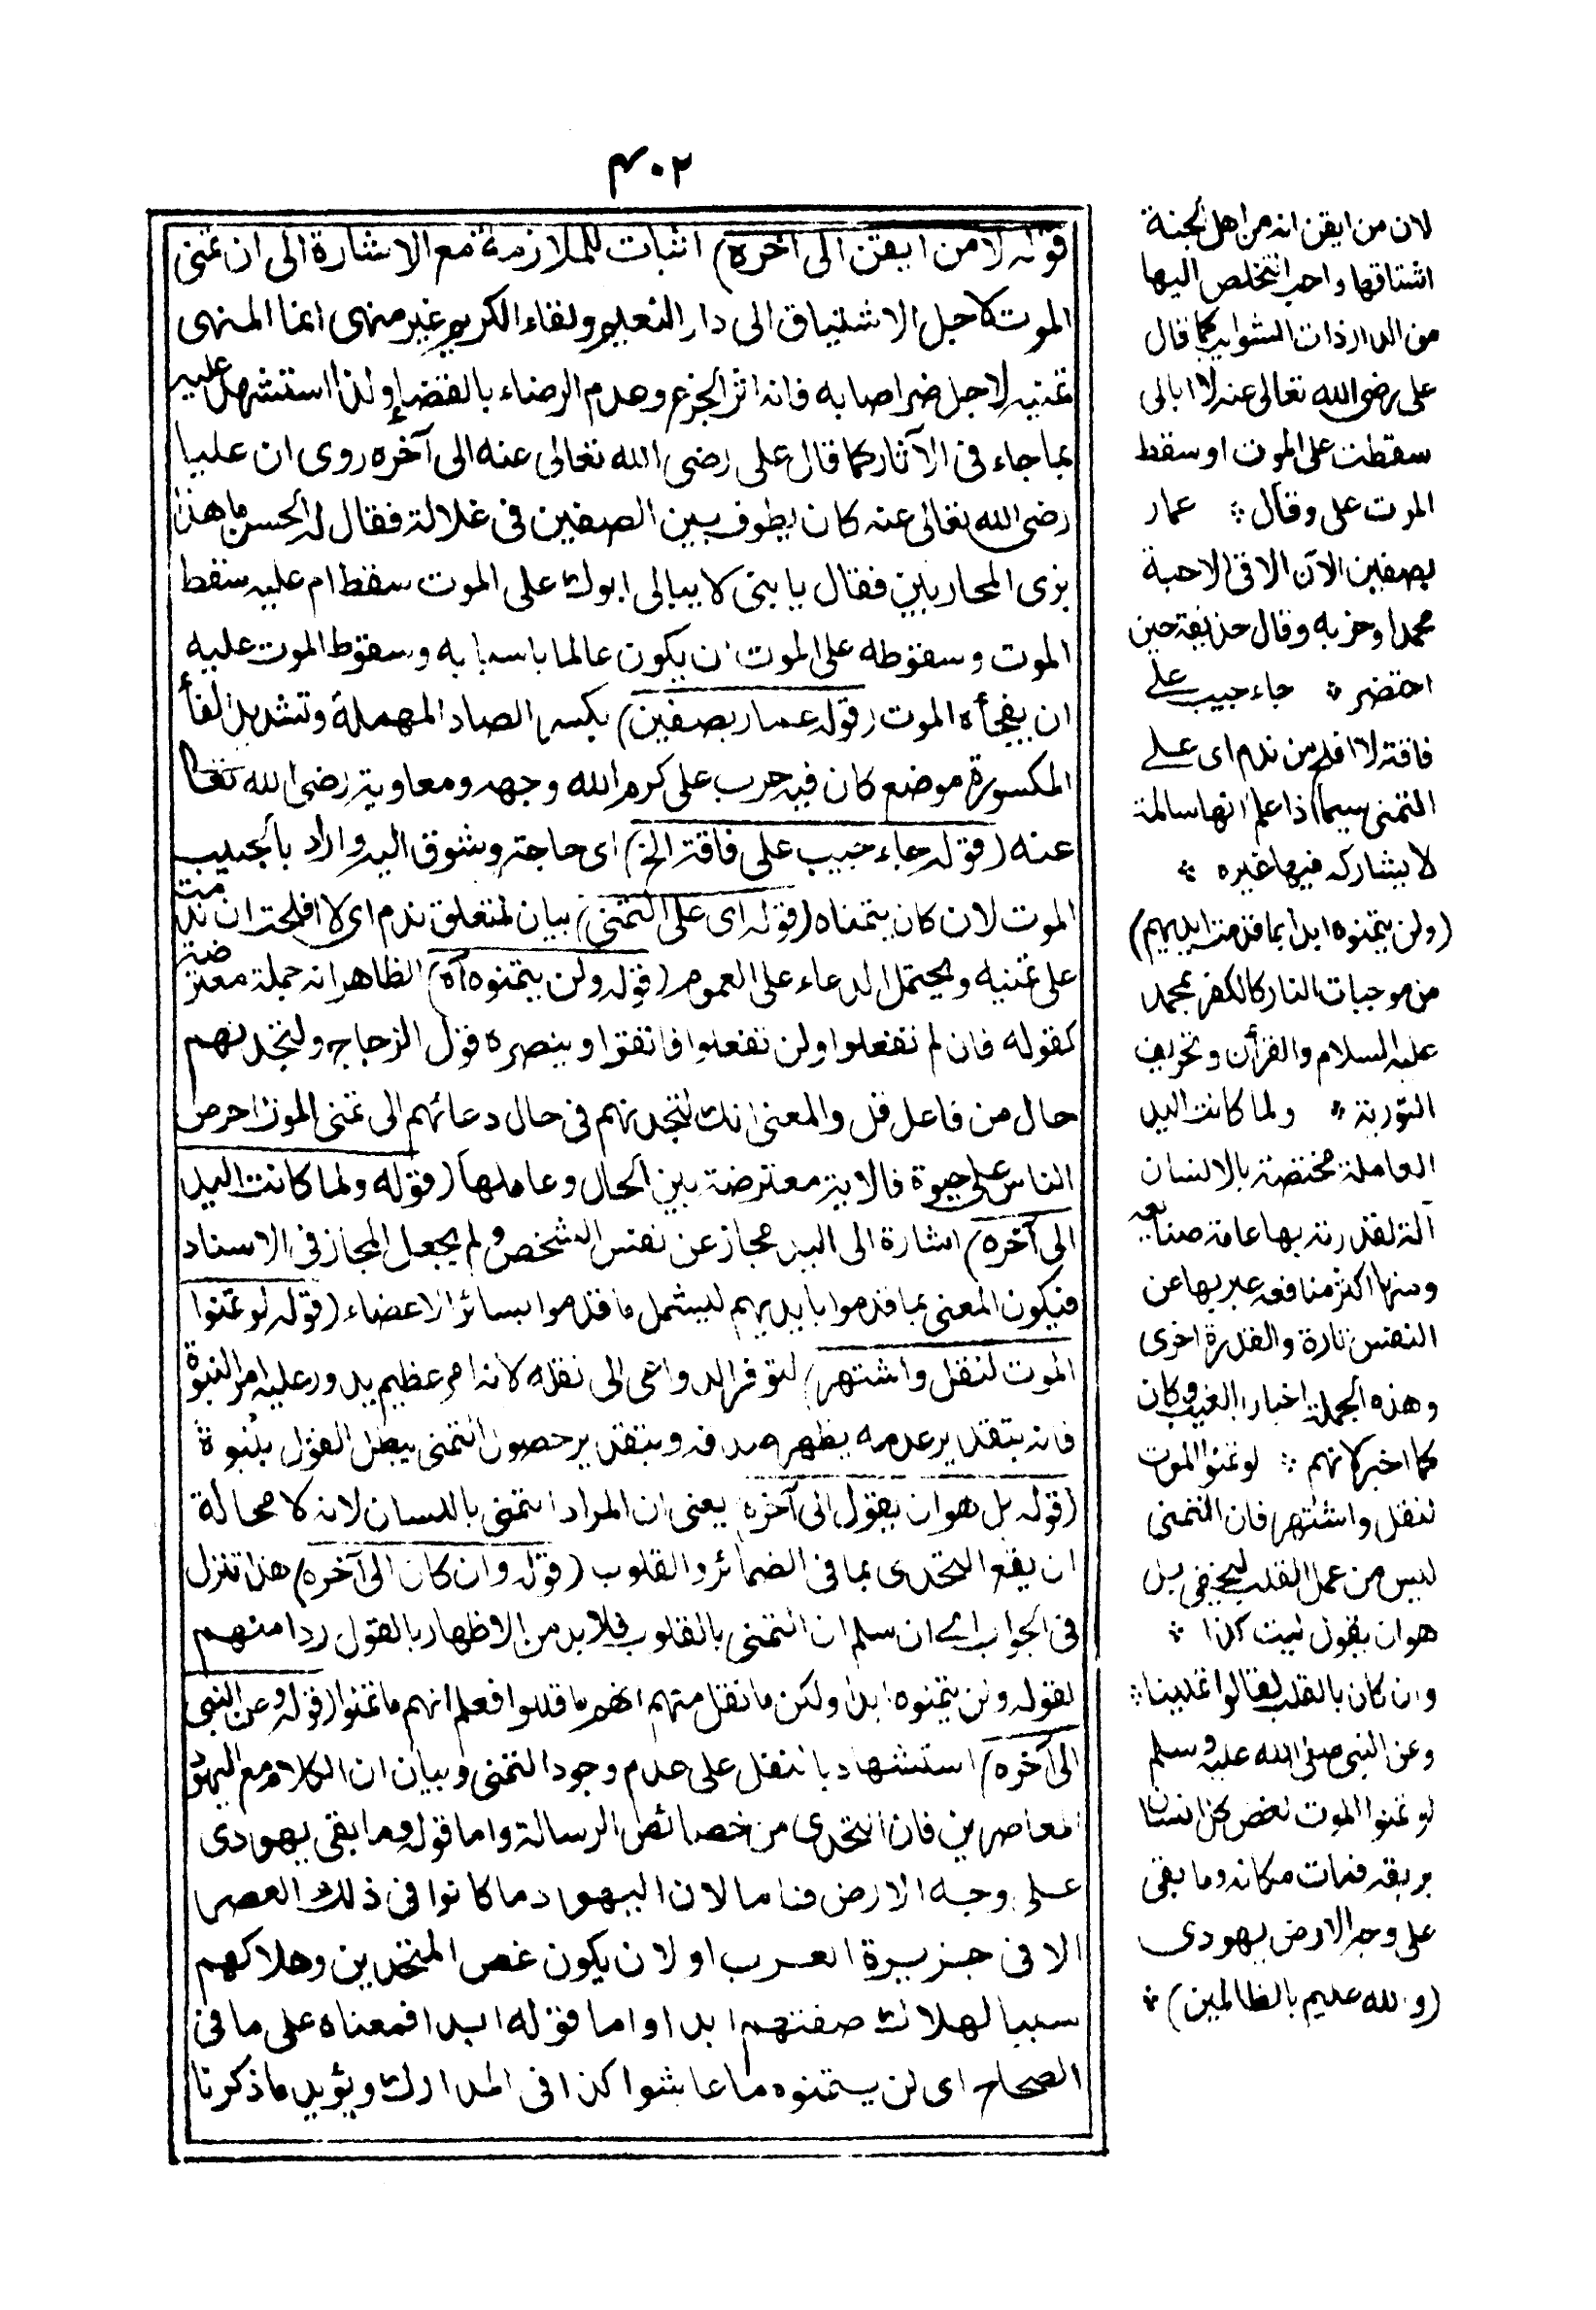 ۴۰۲
قوله لا من ايقن الى آخره) اثبات للملازمة مع الاشارة الى ان تمنى
الموت لاجل الاشتياق الى دار النعيم ولقاء الكريم غير منهى انما المنهى
تمنيه لاجل ضر اصابه فانه اثر الجزع وعدم الرضاء بالقضاء ولذا استشهد عليه
بما جاء فى الآثار كما قال على رضى الله تعالى عنه الى آخره روى ان عليا
رضى الله تعالى عنه كان يطوف بين الصفين فى غلالة فقال له الحسن ما هذا
بزى المحاربين فقال يا بنى لا يبالى ابوك على الموت سقط ام عليه سقط
الموت وسقوطه على الموت ان يكون عالما باسبابه وسقوط الموت عليه
ان يفجأه الموت (قوله عمار بصفين) بكسر الصاد المهملة وتشديد الفأ
المكسورة موضع كان فيه حرب على كرم الله وجهه ومعاوية رضى الله تعالى
عنه (قوله جاء حبيب على فاقة الخ) اى حاجة وشوق اليه واراد بالحبيب
الموت لان كان يتمناه (قوله اى على التمنى) بيان لمتعلق ندم اى لا افلحت ان ندمت
على تمنيه ويحتمل الدعاء على العموم (قوله ولن يتمنوه آه) الظاهر انه جملة معترضة
كقوله فان لم تفعلوا ولن تفعلوا فاتقوا وينصره قول الزجاج ولتجدنهم
حال من فاعل قل والمعنى انك لتجدنهم فى حال دعائهم الى تمنى الموت احرص
الناس على حيوة فالاية معترضة بين الحال وعاملها (قوله ولما كانت اليد
الى آخره) اشارة الى اليد مجاز عن نفس الشخص ولم يجعل المجاز فى الاسناد
فيكون المعنى بما قدموا بايديهم ليشمل ما قدموا بسائر الاعضاء (قوله لو تمنوا
الموت لنقل واشتهر) لتوفر الدواعى الى نقله لانه امر عظيم يدور عليه امر النبوة
فانه بتقدير عدمه يظهر صدقه وبتقدير حصول التمنى يبطل القول بنبوة
(قوله بل هو ان يقول الى آخره) يعنى ان المراد التمنى باللسان لانه لا محالة
ان يقع التحدى بما فى الضمائر والقلوب (قوله وان كان الى آخره) هذا تنزل
فى الجواب اے ان سلم ان التمنى بالقلوب فلا بد من الاظهار بالقول ردا منهم
لقوله ولن يتمنوه ابدا ولكن ما نقل منهم انهم ما قالوا فعلم انهم ما تمنوا (قوله وعن النبى
الى آخره) استشهاد بالنقل على عدم وجود التمنى وبيان ان الكلام مع اليهود
المعاصرين فان التحدى من خصائص الرسالة واما قوله وما بقى يهودى
على وجه الارض فاما لان اليهود ما كانوا فى ذلك العصر
الا فى جزيرة العرب او لان يكون غصر المتحدين وهلاكهم
سببا لهلاك صفتهم ابدا واما قوله ابدا فمعناه على ما فى
الصحاح اى لن يتمنوه ما عاشوا كذا فى المدارك ويؤيد ما ذكرنا
لان من ايقن انه من اهل الجنة
اشتاقها واحب التخلص اليها
من الدار ذات الشوائب كما قال
على رضى الله تعالى عنه لا ابالى
سقطت على الموت او سقط
الموت على وقال ؞ عمار
بصفين الان الاقى الاحبة
محمدا وحزبه وقال حذيفة حين
احتضر ؞ جاء حبيب على
فاقة لا افلح من ندم اى على
التمنى سيما اذا علم انها سالمة
لا يشاركه فيها غيره ؞
(ولن يتمنوه ابدا بما قدمت ايديهم)
من موجبات النار كالكفر بمحمد
عليه السلام والقرأن وتحريف
التورية ؞ ولما كانت اليد
العاملة مختصة بالانسان
آلة لقدرته بها عامة صنائعه
ومنها اكثر منافعه عبر بها عن
النفس تارة والقدرة اخرى
وهذه الجملة اخبار بالغيب وكان
كما اخبر لانهم ؞ لو تمنوا الموت
لنقل واشتهر فان التمنى
ليس من عمل القلب ليخفى بل
هو ان يقول ليت كذا ؞
وان كان بالقلب لقالوا تمنينا ؞
وعن النبى صلى الله عليه وسلم
لو تمنوا الموت لغص كل انسان
بريقه فمات مكانه وما بقى
على وجه الارض يهودى
(والله عليم بالظالمين) ؞